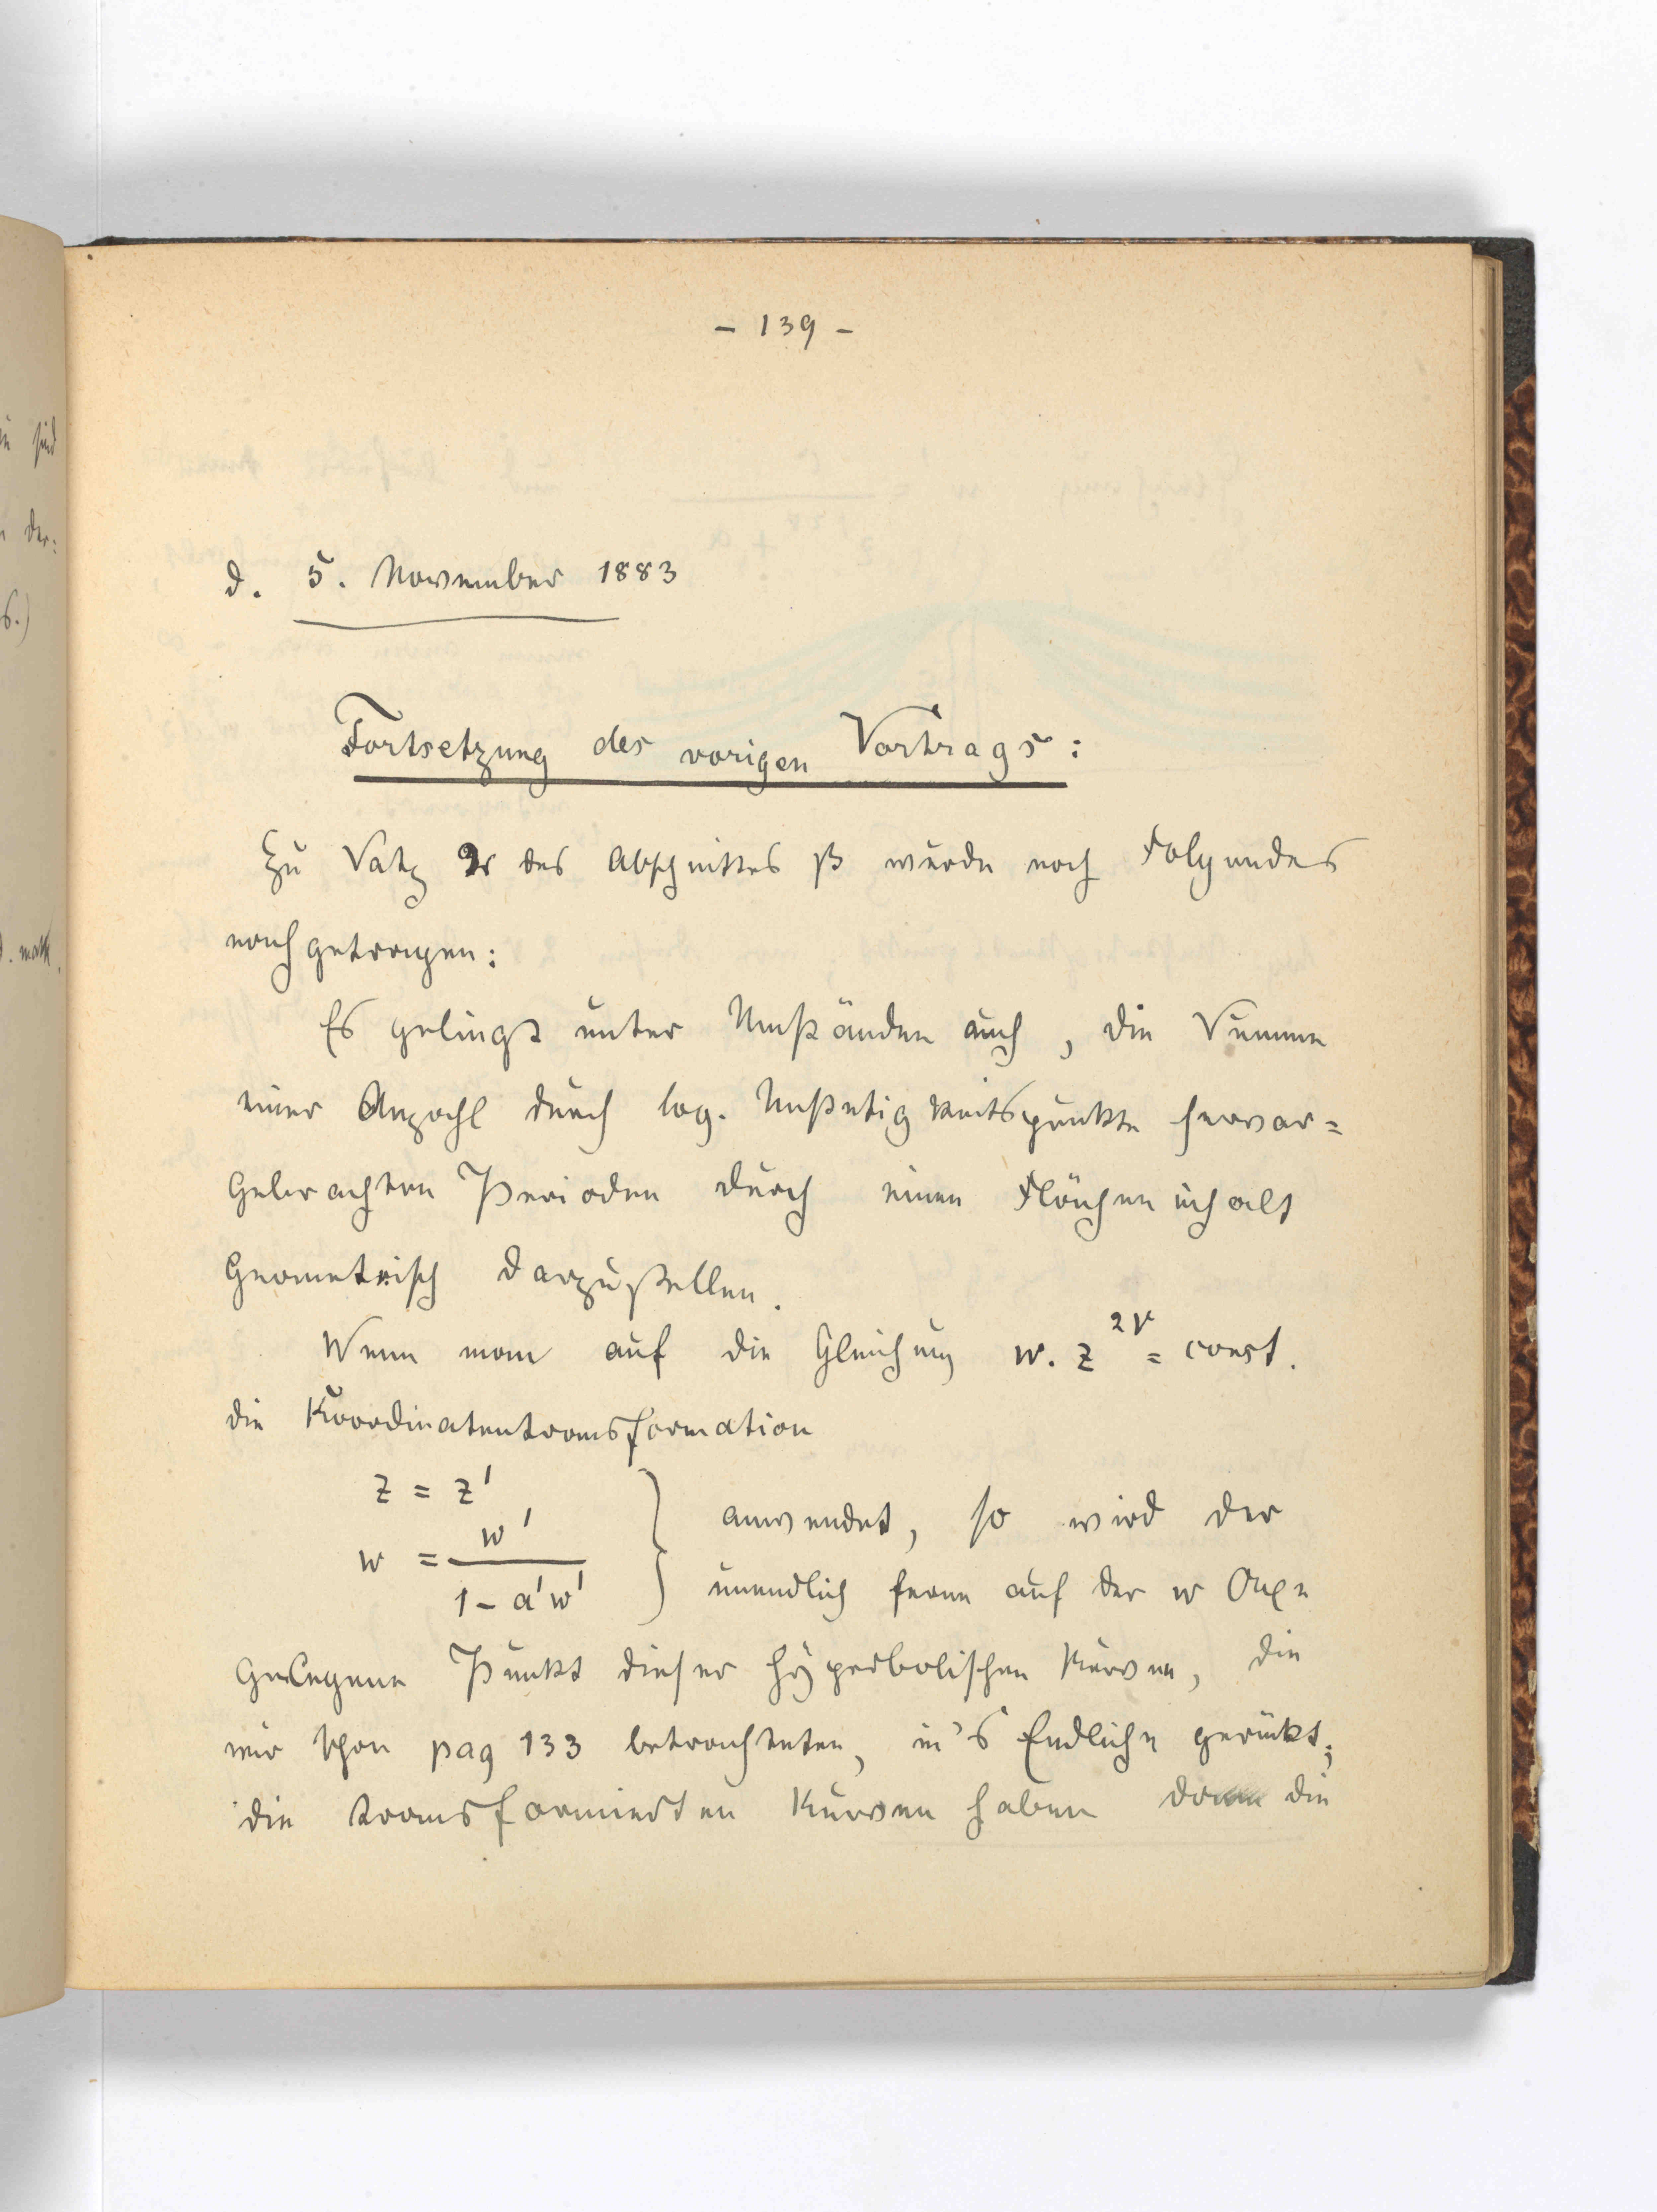 - 139 -
d. 5. November 1883
Fortsetzung des vorigen Vortrags:
Zu Satz des Abschnittes β wurde noch Folgendes
nachgetragen:
Es gelingt unter Umständen auch, die Summe
einer Anzahl durch log. Unstetigkeitspunkte hervor=
gebrachten Perioden durch einen Flächeninhalt
geometrisch darzustellen.
Wenn man auf die Gleichung w. z^{2ν} = const.
die Koordinatentransformation
z = z'
w = w' / (1 - a'w') } anwendet, so wird der
unendlich ferne auf der w Axe
gelegene Punkt dieser hyperbolischen Kurven, die
wir schon pag 133 betrachteten, in's Endliche gerückt;
die transformierten Kurven haben dann die
sind
der:
6.)
math.